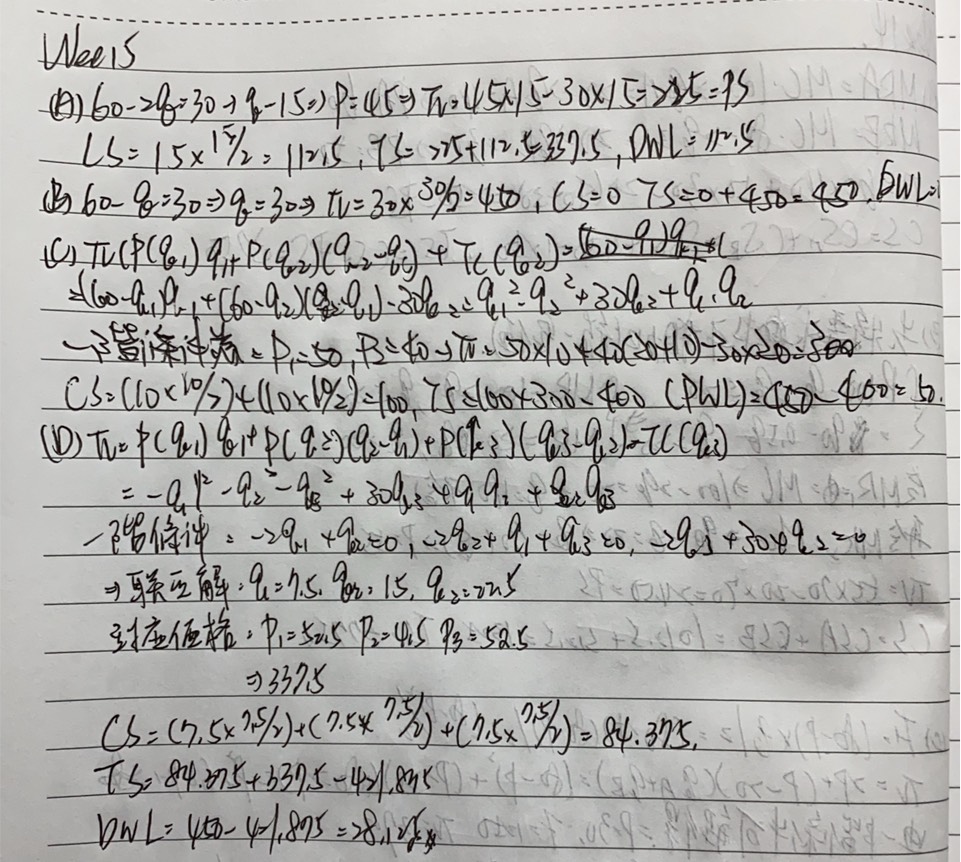 Week15
(A) 60-2q=30→q=15⇒P=45⇒π=45×15-30×15=225=PS
CS=15×15/2=112.5, TS=225+112.5=337.5, DWL=112.5
(B) 60-q=30⇒q=30⇒π=30×30/2=450, CS=0 TS=0+450=450. DWL=
(C) π(P(q1)q1+P(q2)(q2-q1)+TC(q2)=
=(60-q1)q1+(60-q2)(q2-q1)-30q2=q1²-q2²+30q2+q1.q2
一階條件為=P1=50, P2=40→π=50×10+40(20+10)-30×20=300
CS=(10×10/2)+(10×10/2)=100, TS=100+300=400 (DWL)=450-400=50.
(D) π=P(q1)q1+P(q2)(q2-q1)+P(q3)(q3-q2)-TC(q3)
=-q1²-q2²-q3²+30q3+q1q2+q2q3
一階條件=-2q1+q2=0,-2q2+q1+q3=0,-2q3+30+q2=0
⇒联立解:q1=7.5. q2=15, q3=22.5
對应值格:P1=52.5 P2=45 P3=52.5
⇒337.5
CS=(7.5×7.5/2)+(7.5×7.5/2)+(7.5×7.5/2)=84.375.
TS=84.375+337.5-421.875
DWL=450-421.875=28.125